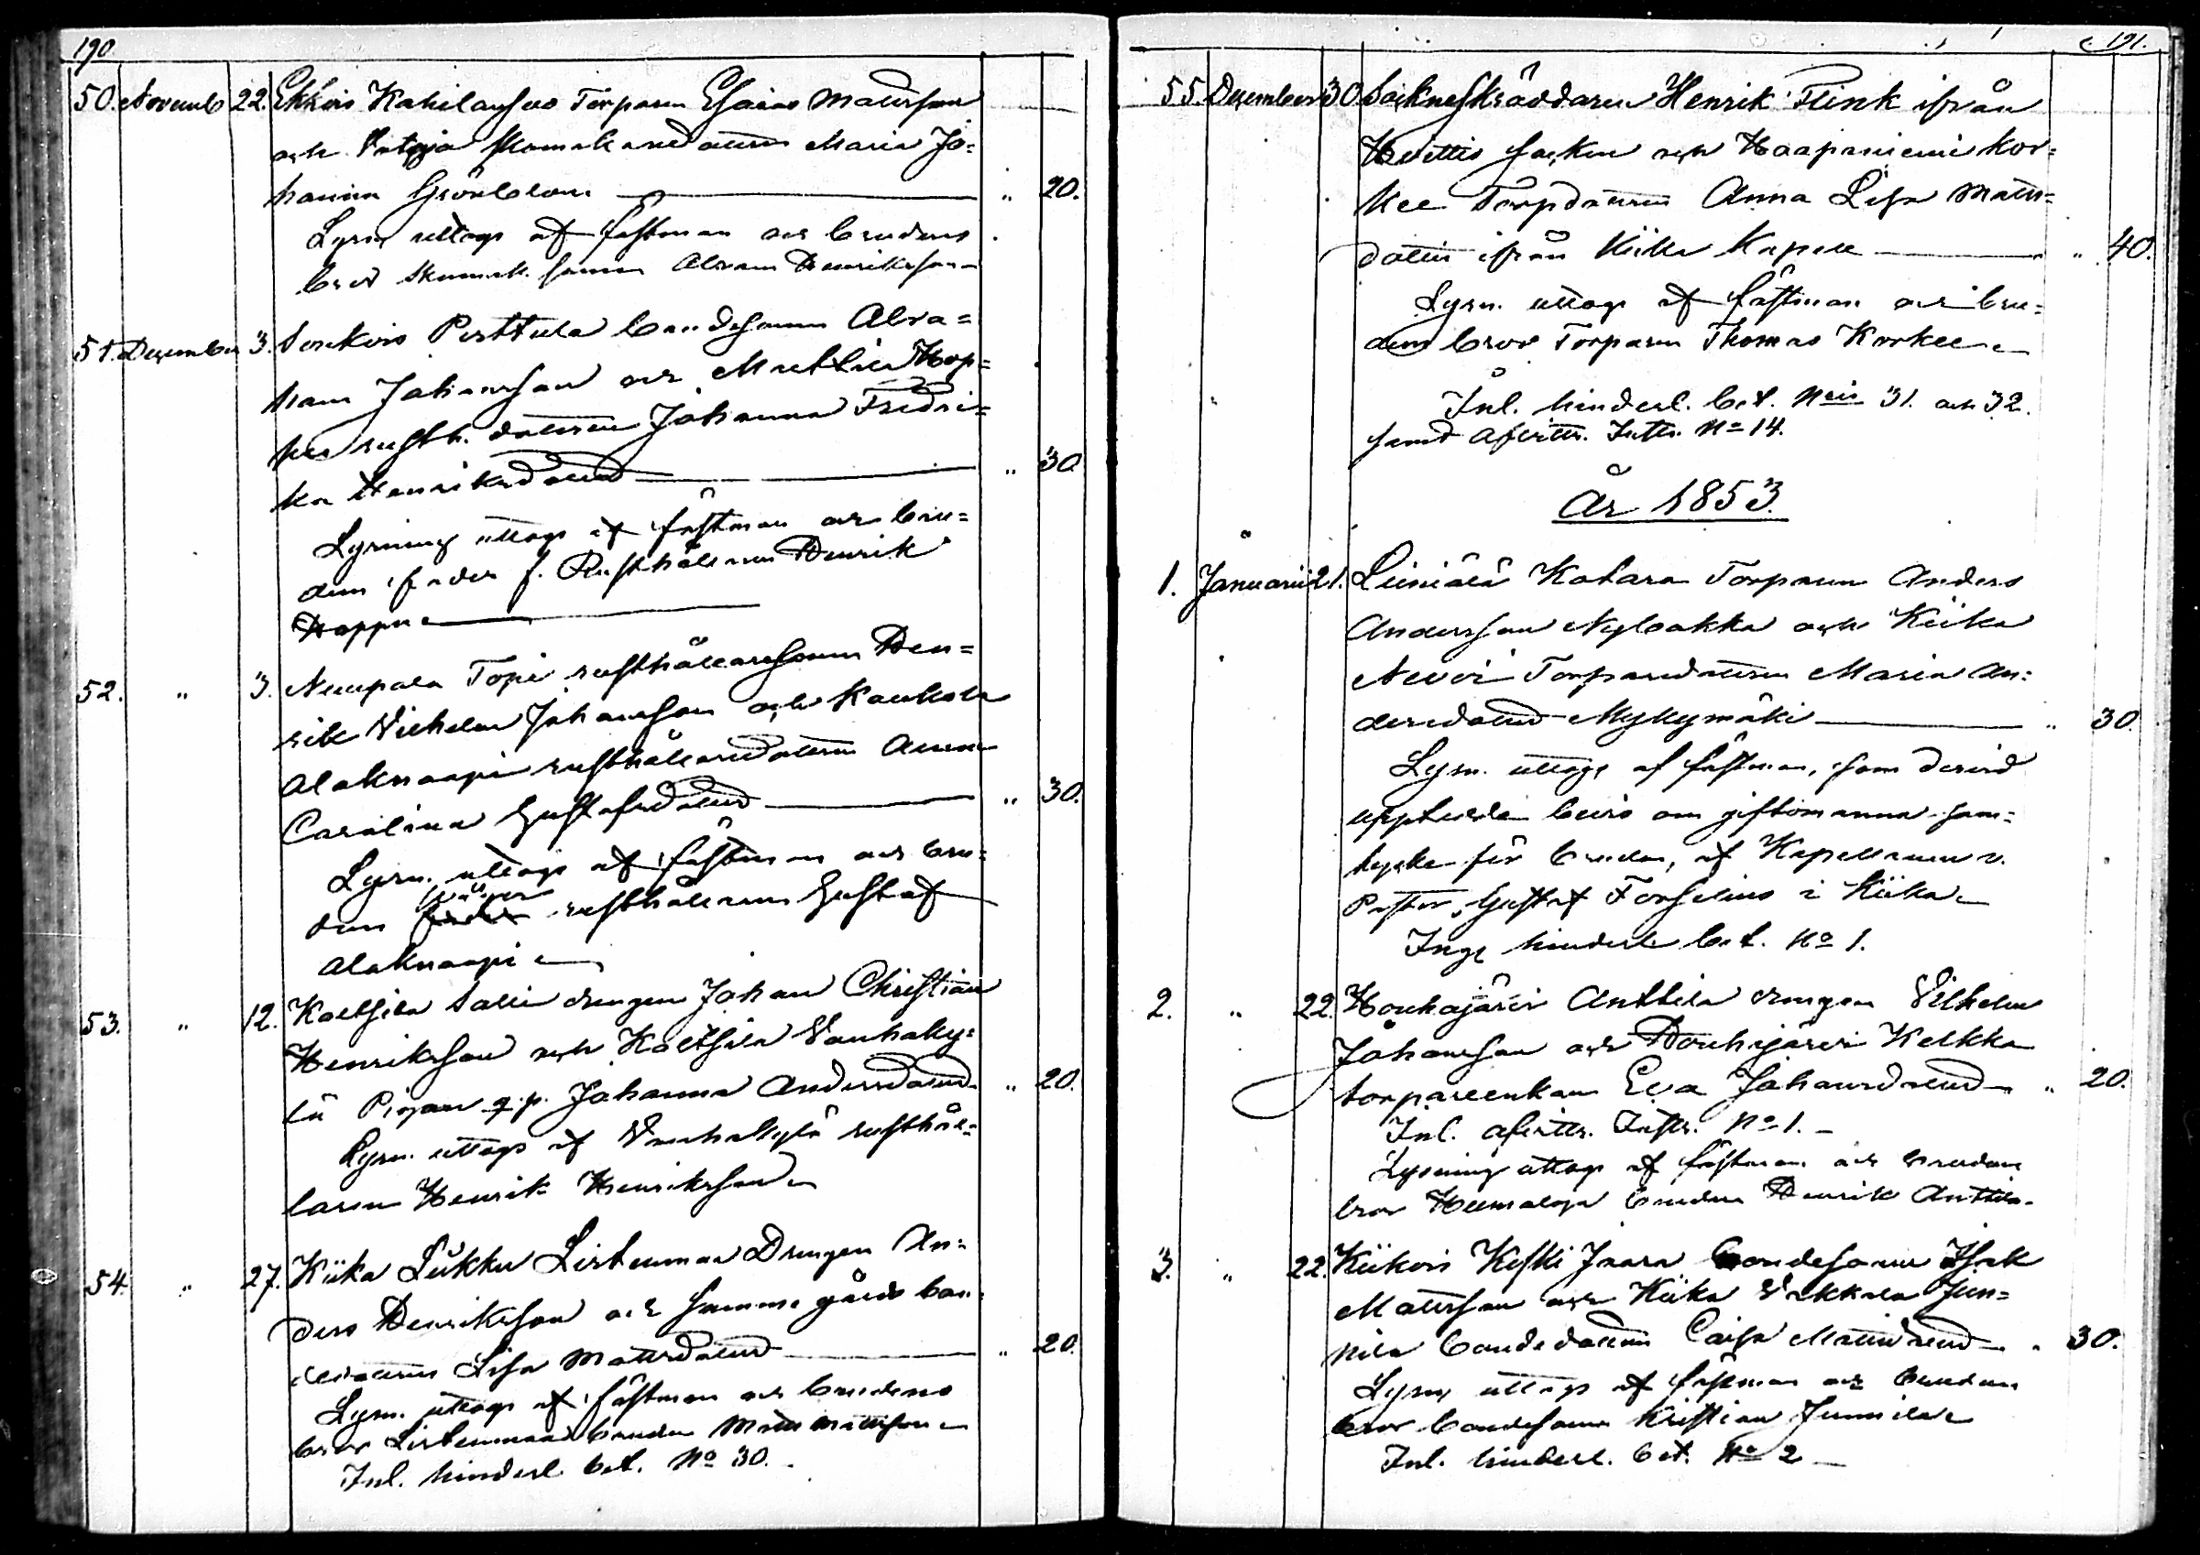 190.
50. Novemb 22. Ekkois Kahilanseus Torparen Esaias Mattsson
och Skomakaredottren Maria Jo=
hanna Grönblom " 20.
Lysn. uttogs af fästman och brudens
bror Skomak. sonen Abram Henriksson
51. December 3. Sonkois Perttula bondesonen Abra=
ham Johansson och Hop=
pu rusth. dottren Johanna Fredri=
ka Henriksdotter " 30.
Lysning uttogs af fästman och bru=
dens fader f. Rusthållaren Henrik
Hoppu
52. " 3. Nuupala Topi rusthållaresonen Hen=
rik Vilhelm Johansson och Kaukola
Alaknaapi rusthållaredottren Anna
Carolina Gustafsdotter " 30.
Lysn. uttogs af fästman och bru=
dens rusthållaren Gustaf
Alaknaapi
53. " 12. Koltsila Salli drengen Johan Christian
Henriksson och Koltsila Vanhaky=
lä Pigan q.p. Johanna Andersdotter " 20.
Lysn. uttogs af Vanhakylä rusthål=
laren Henrik Henriksson
54. " 27. Kiika Liukku Listenmaa Drengen An=
ders Henriksson och samma gårds bon=
dedottren Lisa Mattsdotter " 20.
Lysn. uttogs af fästman och brudens
bror Listenmaa bonden Matts Mattsson
Inl. hinderl. bet. No 30.
191.
55. December 30. Sockneskräddaren Henrik Flink ifrån
Hvittis socken och Haapaniemi Kor=
kee Torpdottren Anna Lisa Matts=
dotter ifrån Kiikka Kapell " 40.
Lysn. uttogs af fästman och bru=
dens bror Torparen Thomas Korkee
Inl. hinderl. bet. N:ris 31. och 32.
samt afvittr. Instr. No 14.
År 1853.
1. Januarii 21. Liiniälä Katara Torparen Anders
Andersson Nylbakka och Kiika
Torparedottren Maria An=
dersdotter Myllymäki " 30.
Lysn. uttogs af fästman, som dervid
uppteedde bevis om giftomanna sam=
tycke för bruden, af Kapellanen v.
Pastor Gustaf Forselius i Kiika
Inge hinderl. bet. No 1.
2. " 22. Houhajärvi Anttila drengen Vilhelm
Johansson och Houhijärvi Kelkka
torpareenkan Eva Johansdotter " 20.
Inl. afvittr. Instr. No 1.
Lysning uttogs af fästman och brudens
bror bonden Henrik Anttila
3. " 22. Kiikois Keski Jaara bondesonen Isak
Mattsson och Kiika Vakkala Jun=
nila bondedottren Caisa Mattsdotter " 30.
Lysn. uttogs af fästman och brudens
bror bondesonen Kristian Junnila
Inl. hinderl. bet. No 2